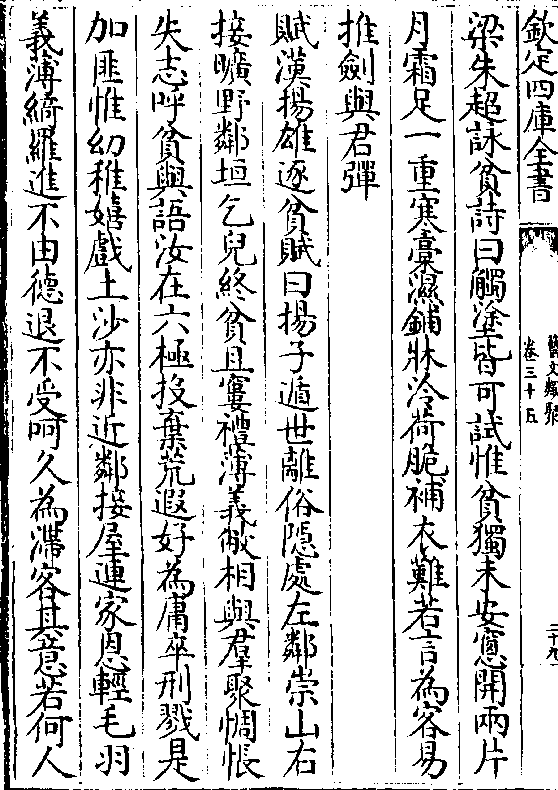 欽定四庫全書
藝文類聚
卷三十五
二十九
梁朱超詠貧詩曰觸塗皆可試惟貧獨未安窻開兩片
月霜足一重寒藁濕鋪牀冷荷脆補衣難若言為客易
推劍與君彈
賦漢揚雄逐貧賦曰揚子遁世離俗隱處左鄰崇山右
接曠野鄰垣乞兒終貧且寠禮薄義㢢相與羣聚惆悵
失志呼貧與語汝在六極投棄荒遐好為庸卒刑戮是
加匪惟幼稚嬉戲土沙亦非近鄰接屋連家恩輕毛羽
義薄綺羅進不由德退不受呵久為滯客其意若何人